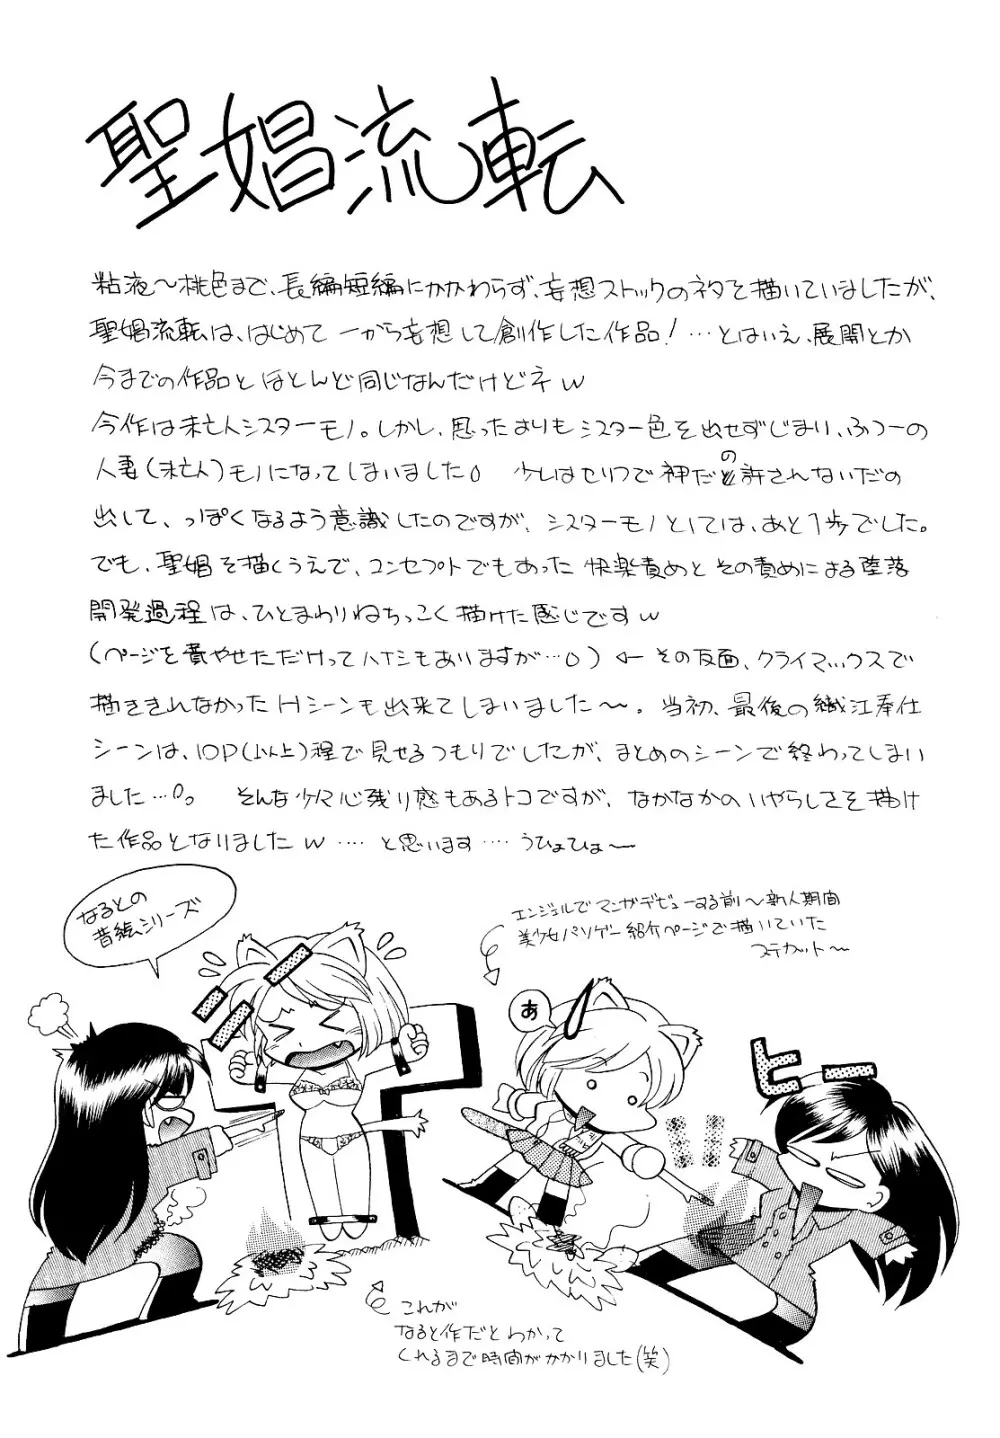 聖娼流転
粘液～桃色まで、長編短編にかかわらず、妄想ストックのネタを描いていましたが、
聖娼流転は、はじめて一から妄想して創作した作品!…とはいえ、展開とか
今までの作品とほとんど同じなんだけどネw
今作は未亡人シスターモノ。しかし、思ったよりもシスター色を出せずじまい、ふつーの
人妻(未亡人)モノになってしまいました。 少しはセリフで神だの許されないだの
出して、っぽくなるよう意識したのですが、シスターモノとしては、あと1歩でした。
でも、聖娼を描くうえで、コンセプトでもあった快楽責めとその責めによる堕落
開発過程は、ひとまわりねちっこく描けた感じですw
(ページを費やせただけってハナシもありますが…。)←その反面、クライマックスで
描ききれなかったHシーンも出来てしまいました～。当初、最後の織江奉仕
シーンは、10P(以上)程で見せるつもりでしたが、まとめのシーンで終わってしまい
ました…。 そんな少々心残り感もあるトコですが、なかなかのいやらしさを描け
た作品となりましたw …と思います…うひょひょ～
なるとの
昔絵シリーズ
エンジェルでマンガデビューする前～新人期間
美少女パソゲー紹介ページで描いていた
ステカット～
あ
ヒー
これが
なると作だとわかって
くれるまで時間がかかりました(笑)